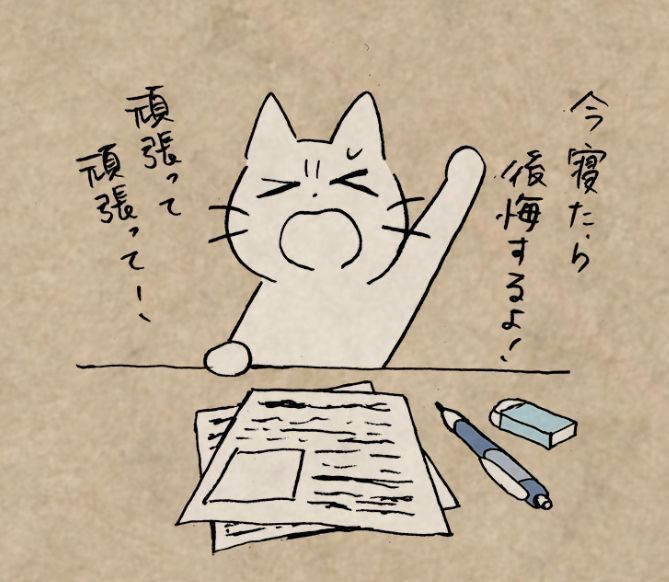 今寝たら
後悔するよ!
頑張って
頑張ってー!